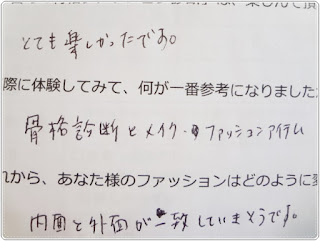 とても楽しかったです。
際に体験してみて、何が一番参考になりました
骨格診断とメイク・ファッションアイテム
から、あなた様のファッションはどのように変
内面と外面が一致していきそうです。